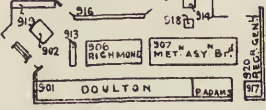 912
916
914
918
902
913
906
RICHMOND
907
MET. ASY'N Brd
920
RECR. CEN.
901
DOULTON
PADAMS
917